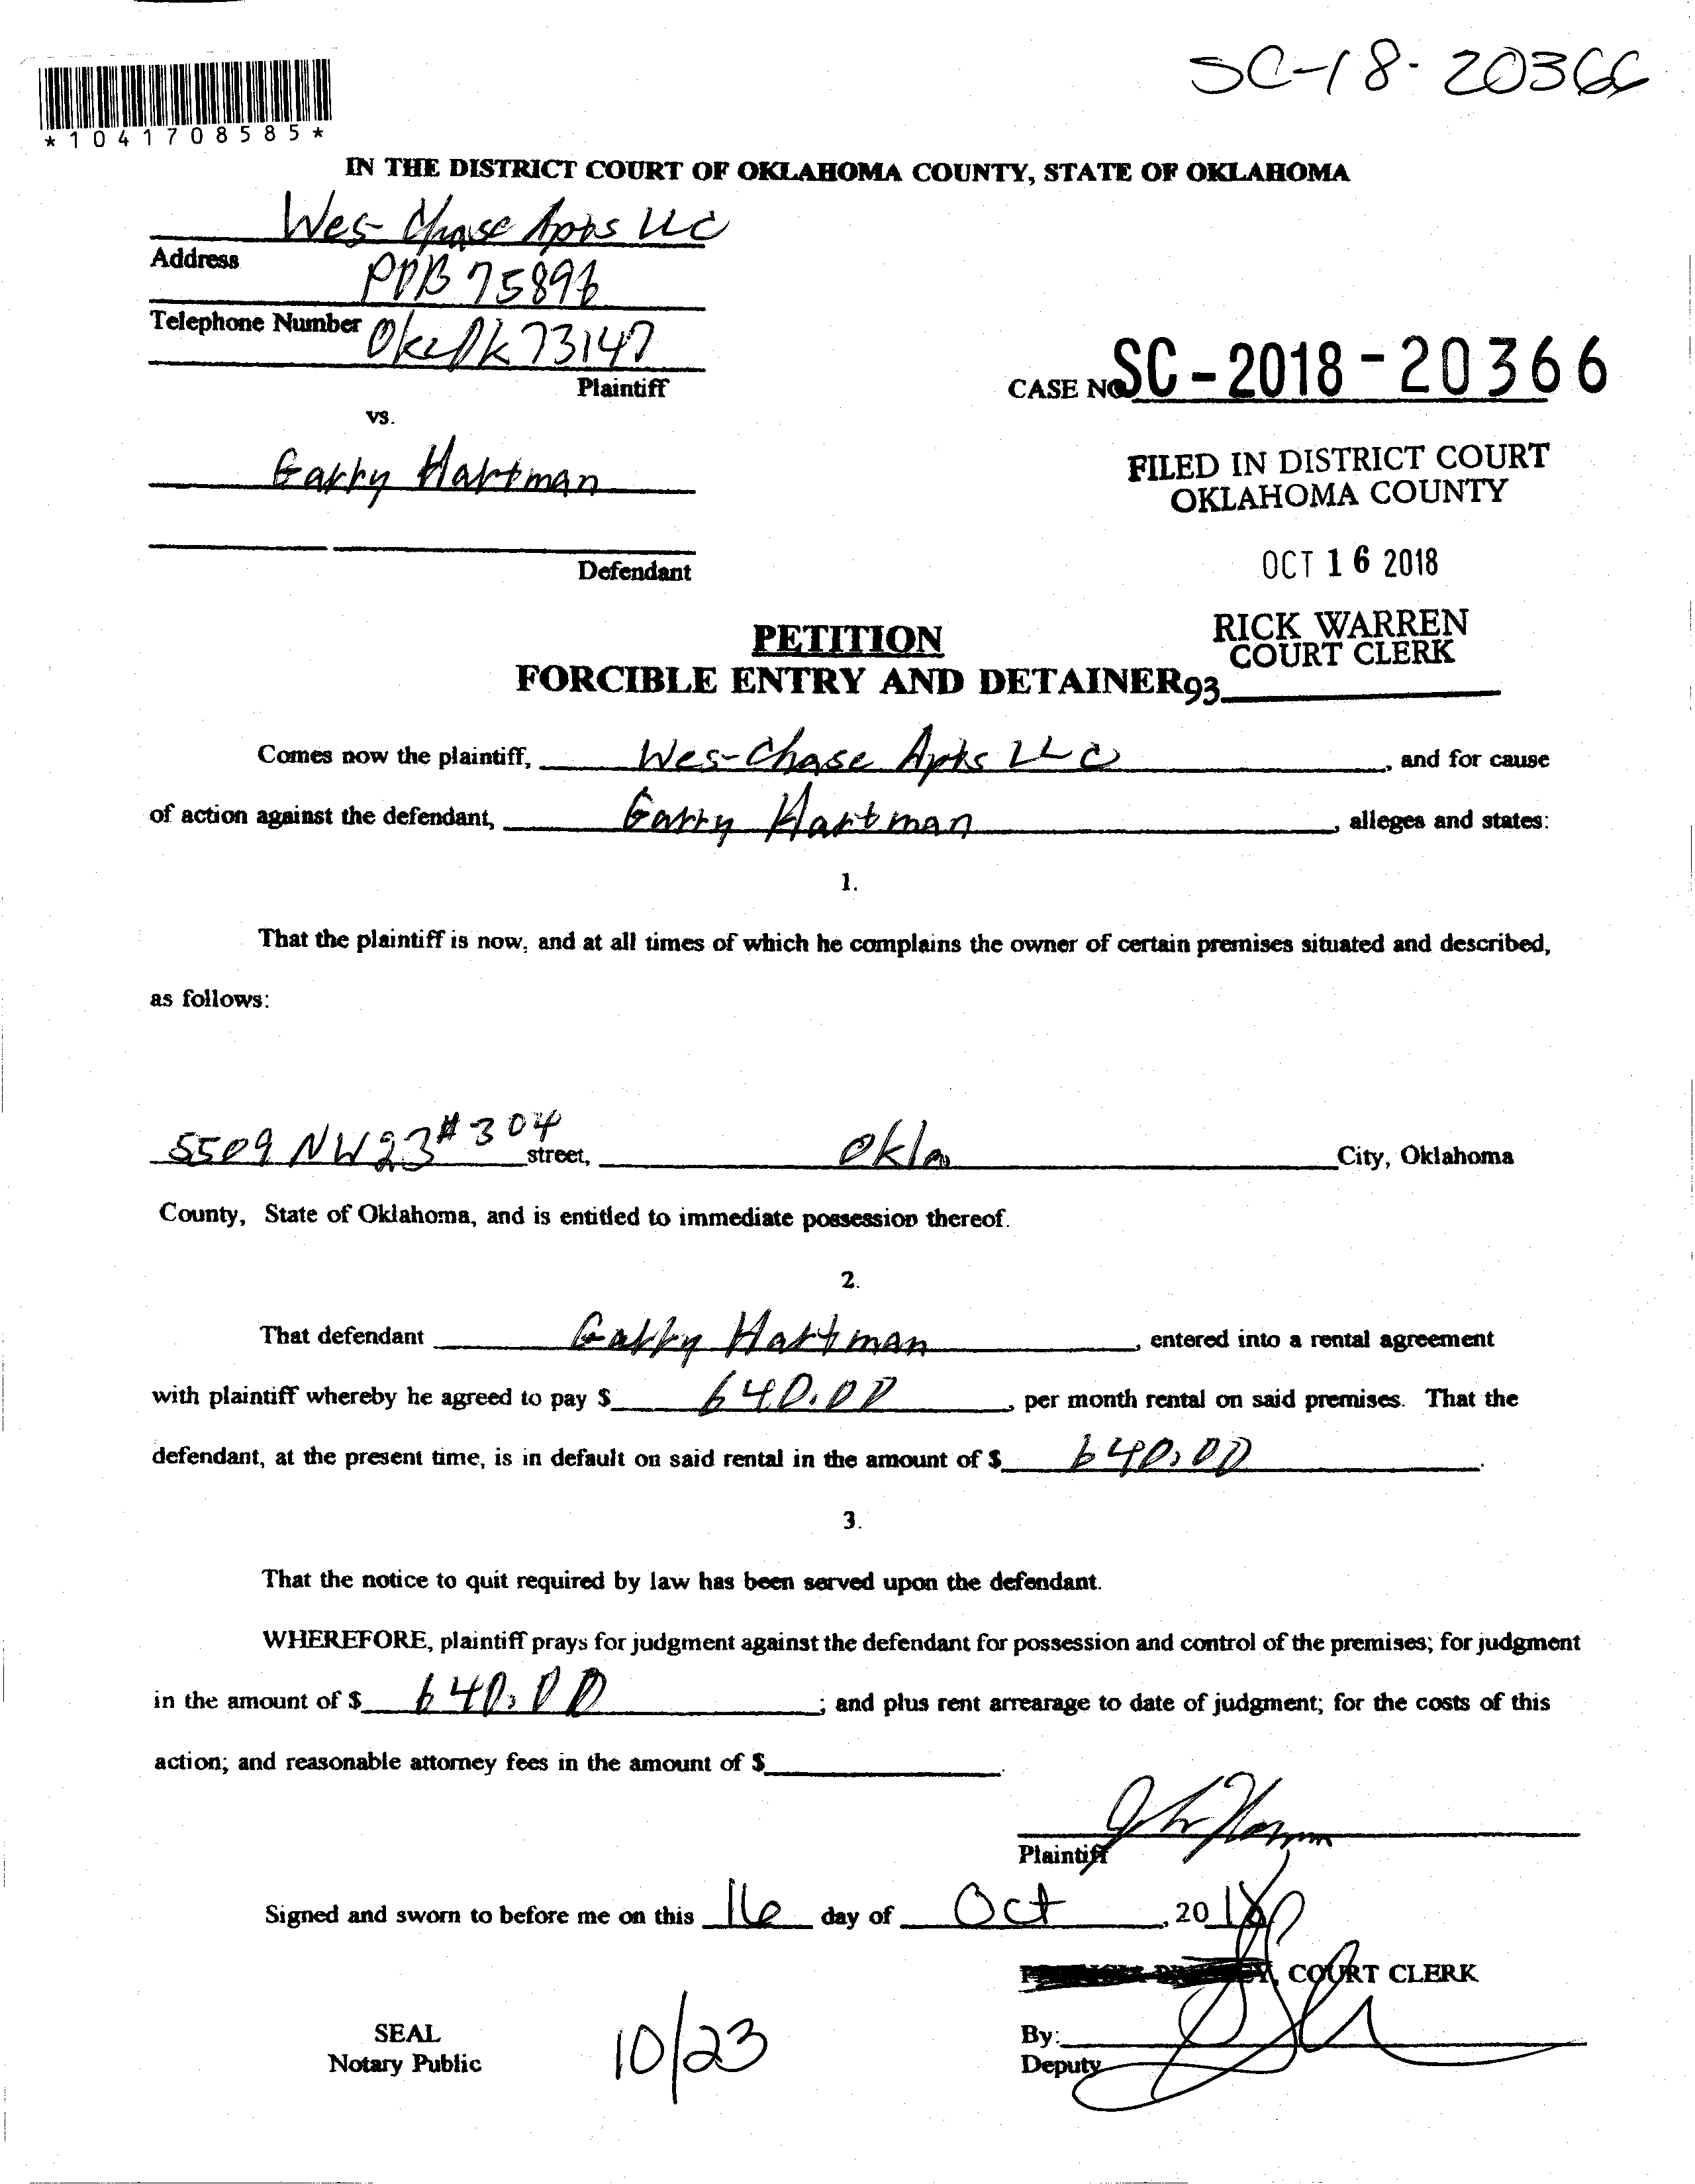 SC-18-20366
*1041708585*
IN THE DISTRICT COURT OF OKLAHOMA COUNTY, STATE OF OKLAHOMA
Wes-Chase Apts LLC
Address
POB 75896
Telephone Number
Okc Ok 73147
Plaintiff
CASE NO SC-2018-20366
vs.
Garry Hartman
FILED IN DISTRICT COURT
OKLAHOMA COUNTY
Defendant
OCT 16 2018
RICK WARREN
COURT CLERK
PETITION
FORCIBLE ENTRY AND DETAINER 93
Comes now the plaintiff, Wes-Chase Apts LLC, and for cause
of action against the defendant, Garry Hartman, alleges and states:
1.
That the plaintiff is now, and at all times of which he complains the owner of certain premises situated and described,
as follows:
5509 NW 23 #304 street, Okla City, Oklahoma
County, State of Oklahoma, and is entitled to immediate possession thereof.
2.
That defendant Garry Hartman, entered into a rental agreement
with plaintiff whereby he agreed to pay $ 640.00, per month rental on said premises. That the
defendant, at the present time, is in default on said rental in the amount of $ 640.00.
3.
That the notice to quit required by law has been served upon the defendant.
WHEREFORE, plaintiff prays for judgment against the defendant for possession and control of the premises; for judgment
in the amount of $ 640.00; and plus rent arrearage to date of judgment; for the costs of this
action; and reasonable attorney fees in the amount of $ .
Plaintiff
Signed and sworn to before me on this 16 day of Oct, 2018
, COURT CLERK
SEAL
Notary Public
10/23
By:
Deputy